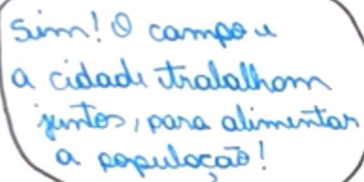 Sim! O campo e
a cidade trabalham
juntos, para alimentar
a população!